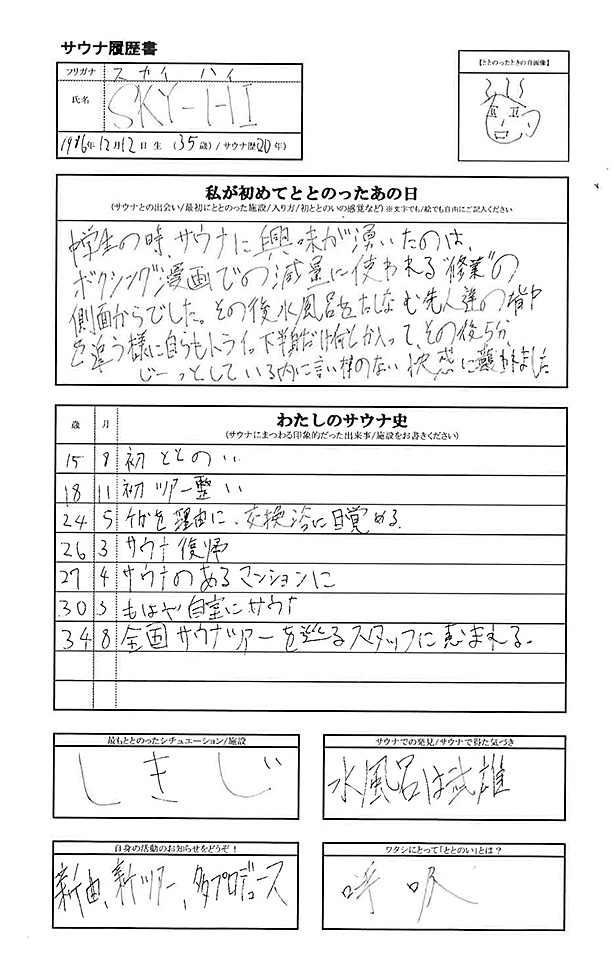 サウナ履歴書
フリガナ スカイハイ
氏名 SKY-HI
1986年12月12日生 (35歳)/サウナ歴20年)
【ととのったときの自画像】
私が初めてととのったあの日
(サウナとの出会い/最初にととのった施設/入り方/初ととのいの感覚など)※文字でも/絵でも自由にご記入ください
中学生の時、サウナに興味が湧いたのは、
ボクシング漫画での減量に使われる"修業"の
側面からでした。その後水風呂をたしなむ先人達の背中
を追う様に自らもトライ。下半身だけ何とか入って、その後5分、
じーっとしている内に言い様のない快感に襲われました
わたしのサウナ史
(サウナにまつわる印象的だった出来事/施設をお書きください)
歳 月
15 8 初ととのい
18 11 初ツアー整い
24 5 ケガを理由に、交換浴に目覚める。
26 3 サウナ復帰
27 4 サウナのあるマンションに
30 3 もはや自室にサウナ
34 8 全国サウナツアーを巡るスタッフに恵まれる。
最もととのったシチュエーション/施設
しきじ
サウナでの発見/サウナで得た気づき
水風呂は武雄
自身の活動のお知らせをどうぞ!
新曲、新ツアー、多プロデュース
ワタシにとって「ととのい」とは?
呼吸